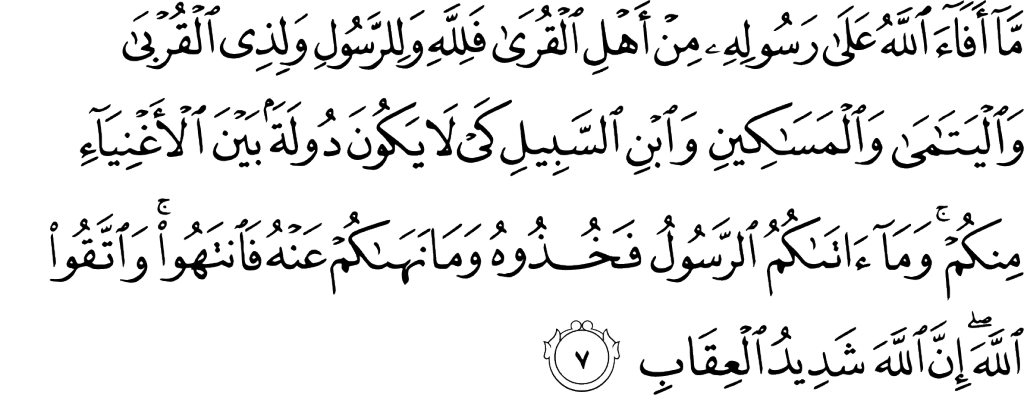 مَّآ أَفَآءَ ٱللَّهُ عَلَىٰ رَسُولِهِۦ مِنْ أَهْلِ ٱلْقُرَىٰ فَلِلَّهِ وَلِلرَّسُولِ وَلِذِى ٱلْقُرْبَىٰ
وَٱلْيَتَـٰمَىٰ وَٱلْمَسَـٰكِينِ وَٱبْنِ ٱلسَّبِيلِ كَىْ لَا يَكُونَ دُولَةًۢ بَيْنَ ٱلْأَغْنِيَآءِ
مِنكُمْ ۚ وَمَآ ءَاتَىٰكُمُ ٱلرَّسُولُ فَخُذُوهُ وَمَا نَهَىٰكُمْ عَنْهُ فَٱنتَهُوا۟ ۚ وَٱتَّقُوا۟
ٱللَّهَ ۖ إِنَّ ٱللَّهَ شَدِيدُ ٱلْعِقَابِ ٧